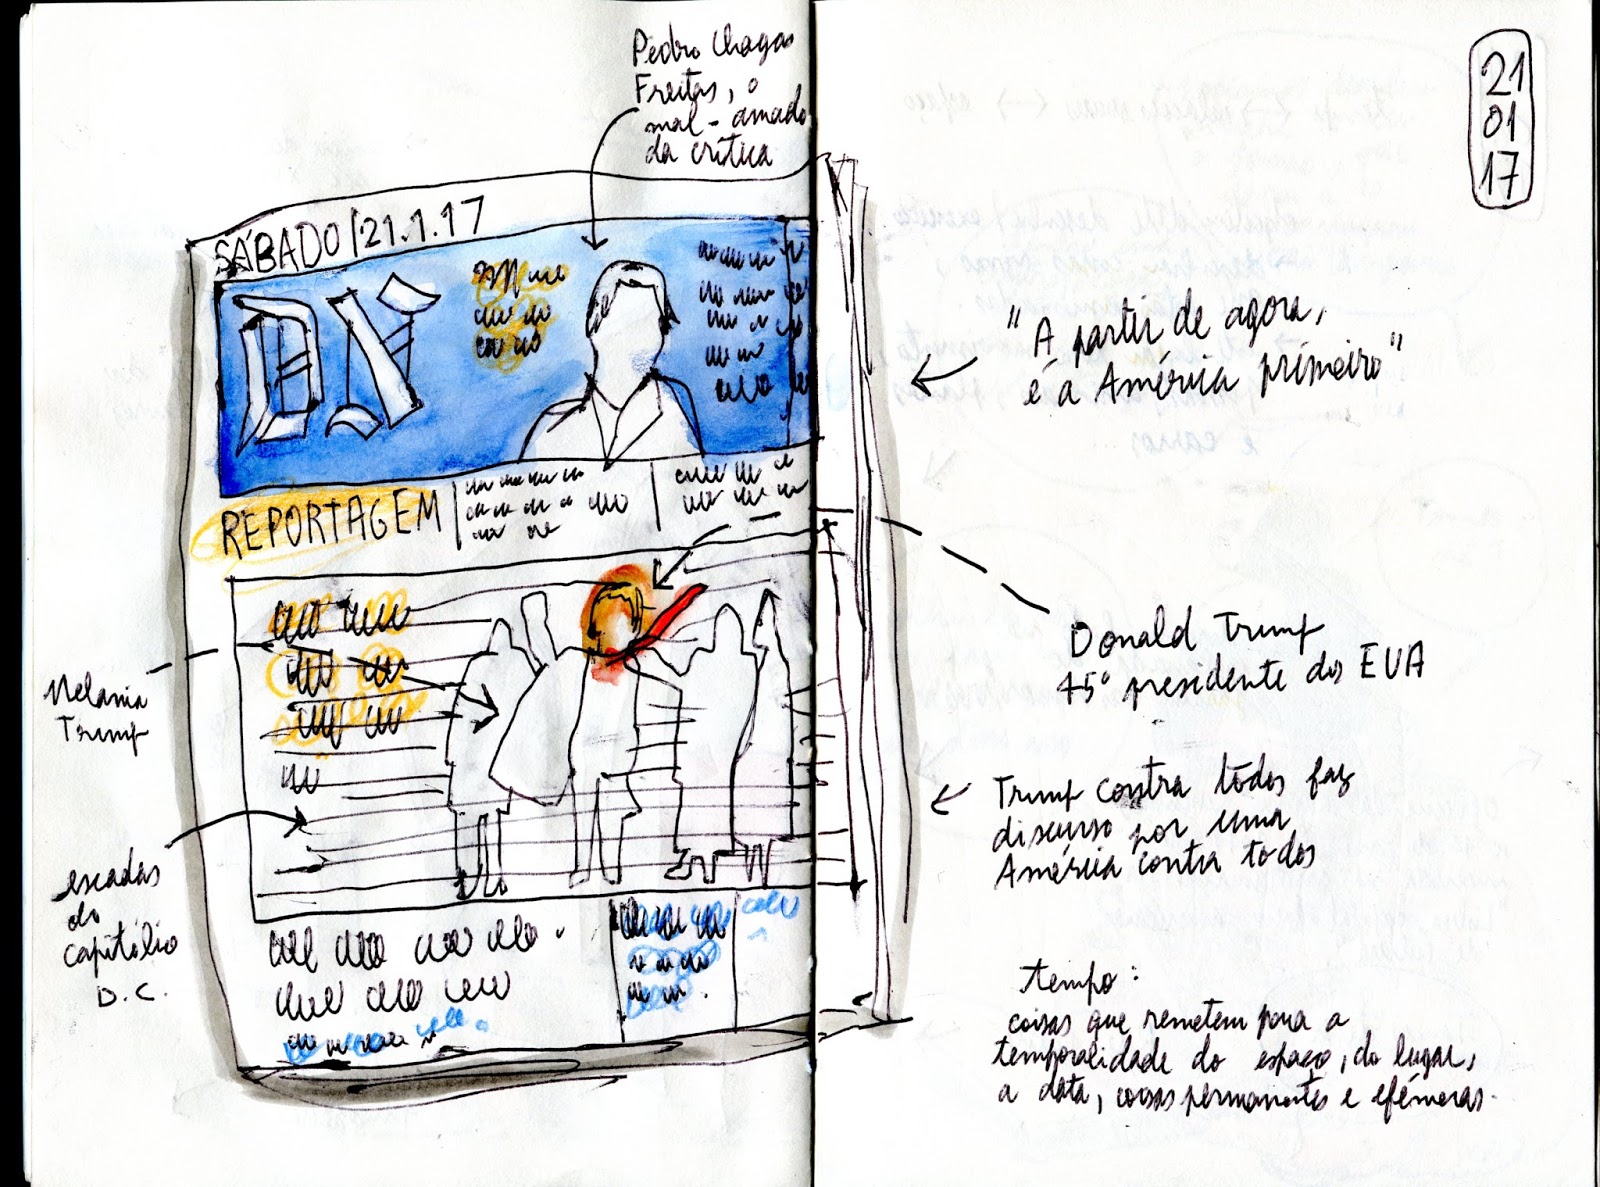 Pedro Chagas
Freitas, o
mal-amado
da crítica
21
01
17
SÁBADO|21.1.17
DN
"A partir de agora,
é a América primeiro"
REPORTAGEM
Donald Trump
45º presidente dos EUA
Melania
Trump
Trump contra todos faz
discurso por uma
América contra todos
escadas
do
Capitólio
D.C.
tempo:
coisas que remetem para a
temporalidade do espaço, do lugar,
a data, coisas permanentes e efémeras.